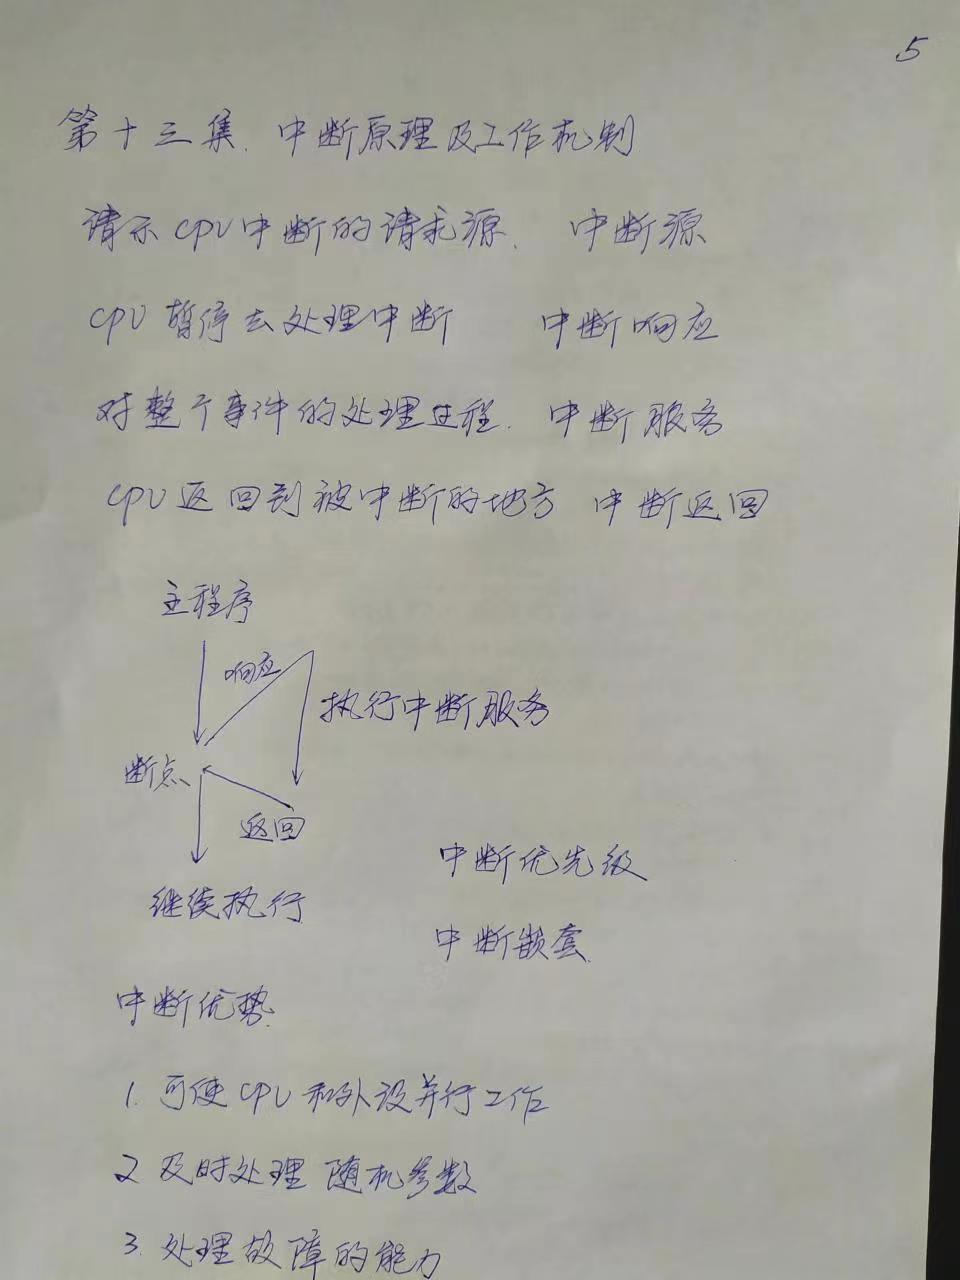 5
第十三集. 中断原理及工作机制
请示CPU中断的请求源. 中断源
CPU暂停去处理中断 中断响应
对整个事件的处理过程. 中断服务
CPU返回到被中断的地方 中断返回
主程序
响应
执行中断服务
断点
返回
中断优先级
继续执行
中断嵌套
中断优势
1. 可使CPU和外设并行工作
2 及时处理 随机参数
3. 处理故障的能力